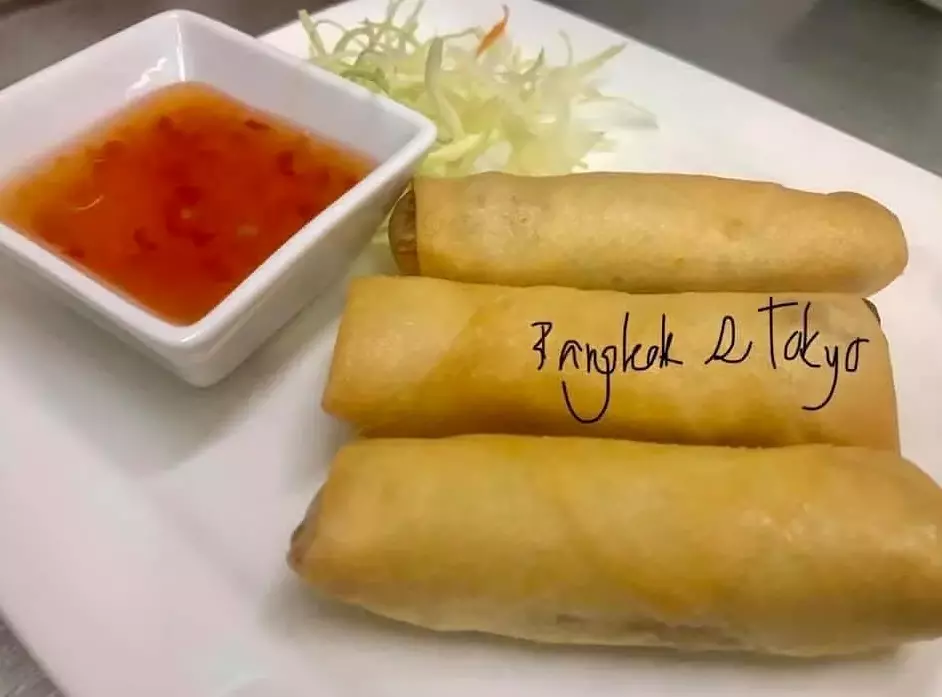 Bangkok & Tokyo